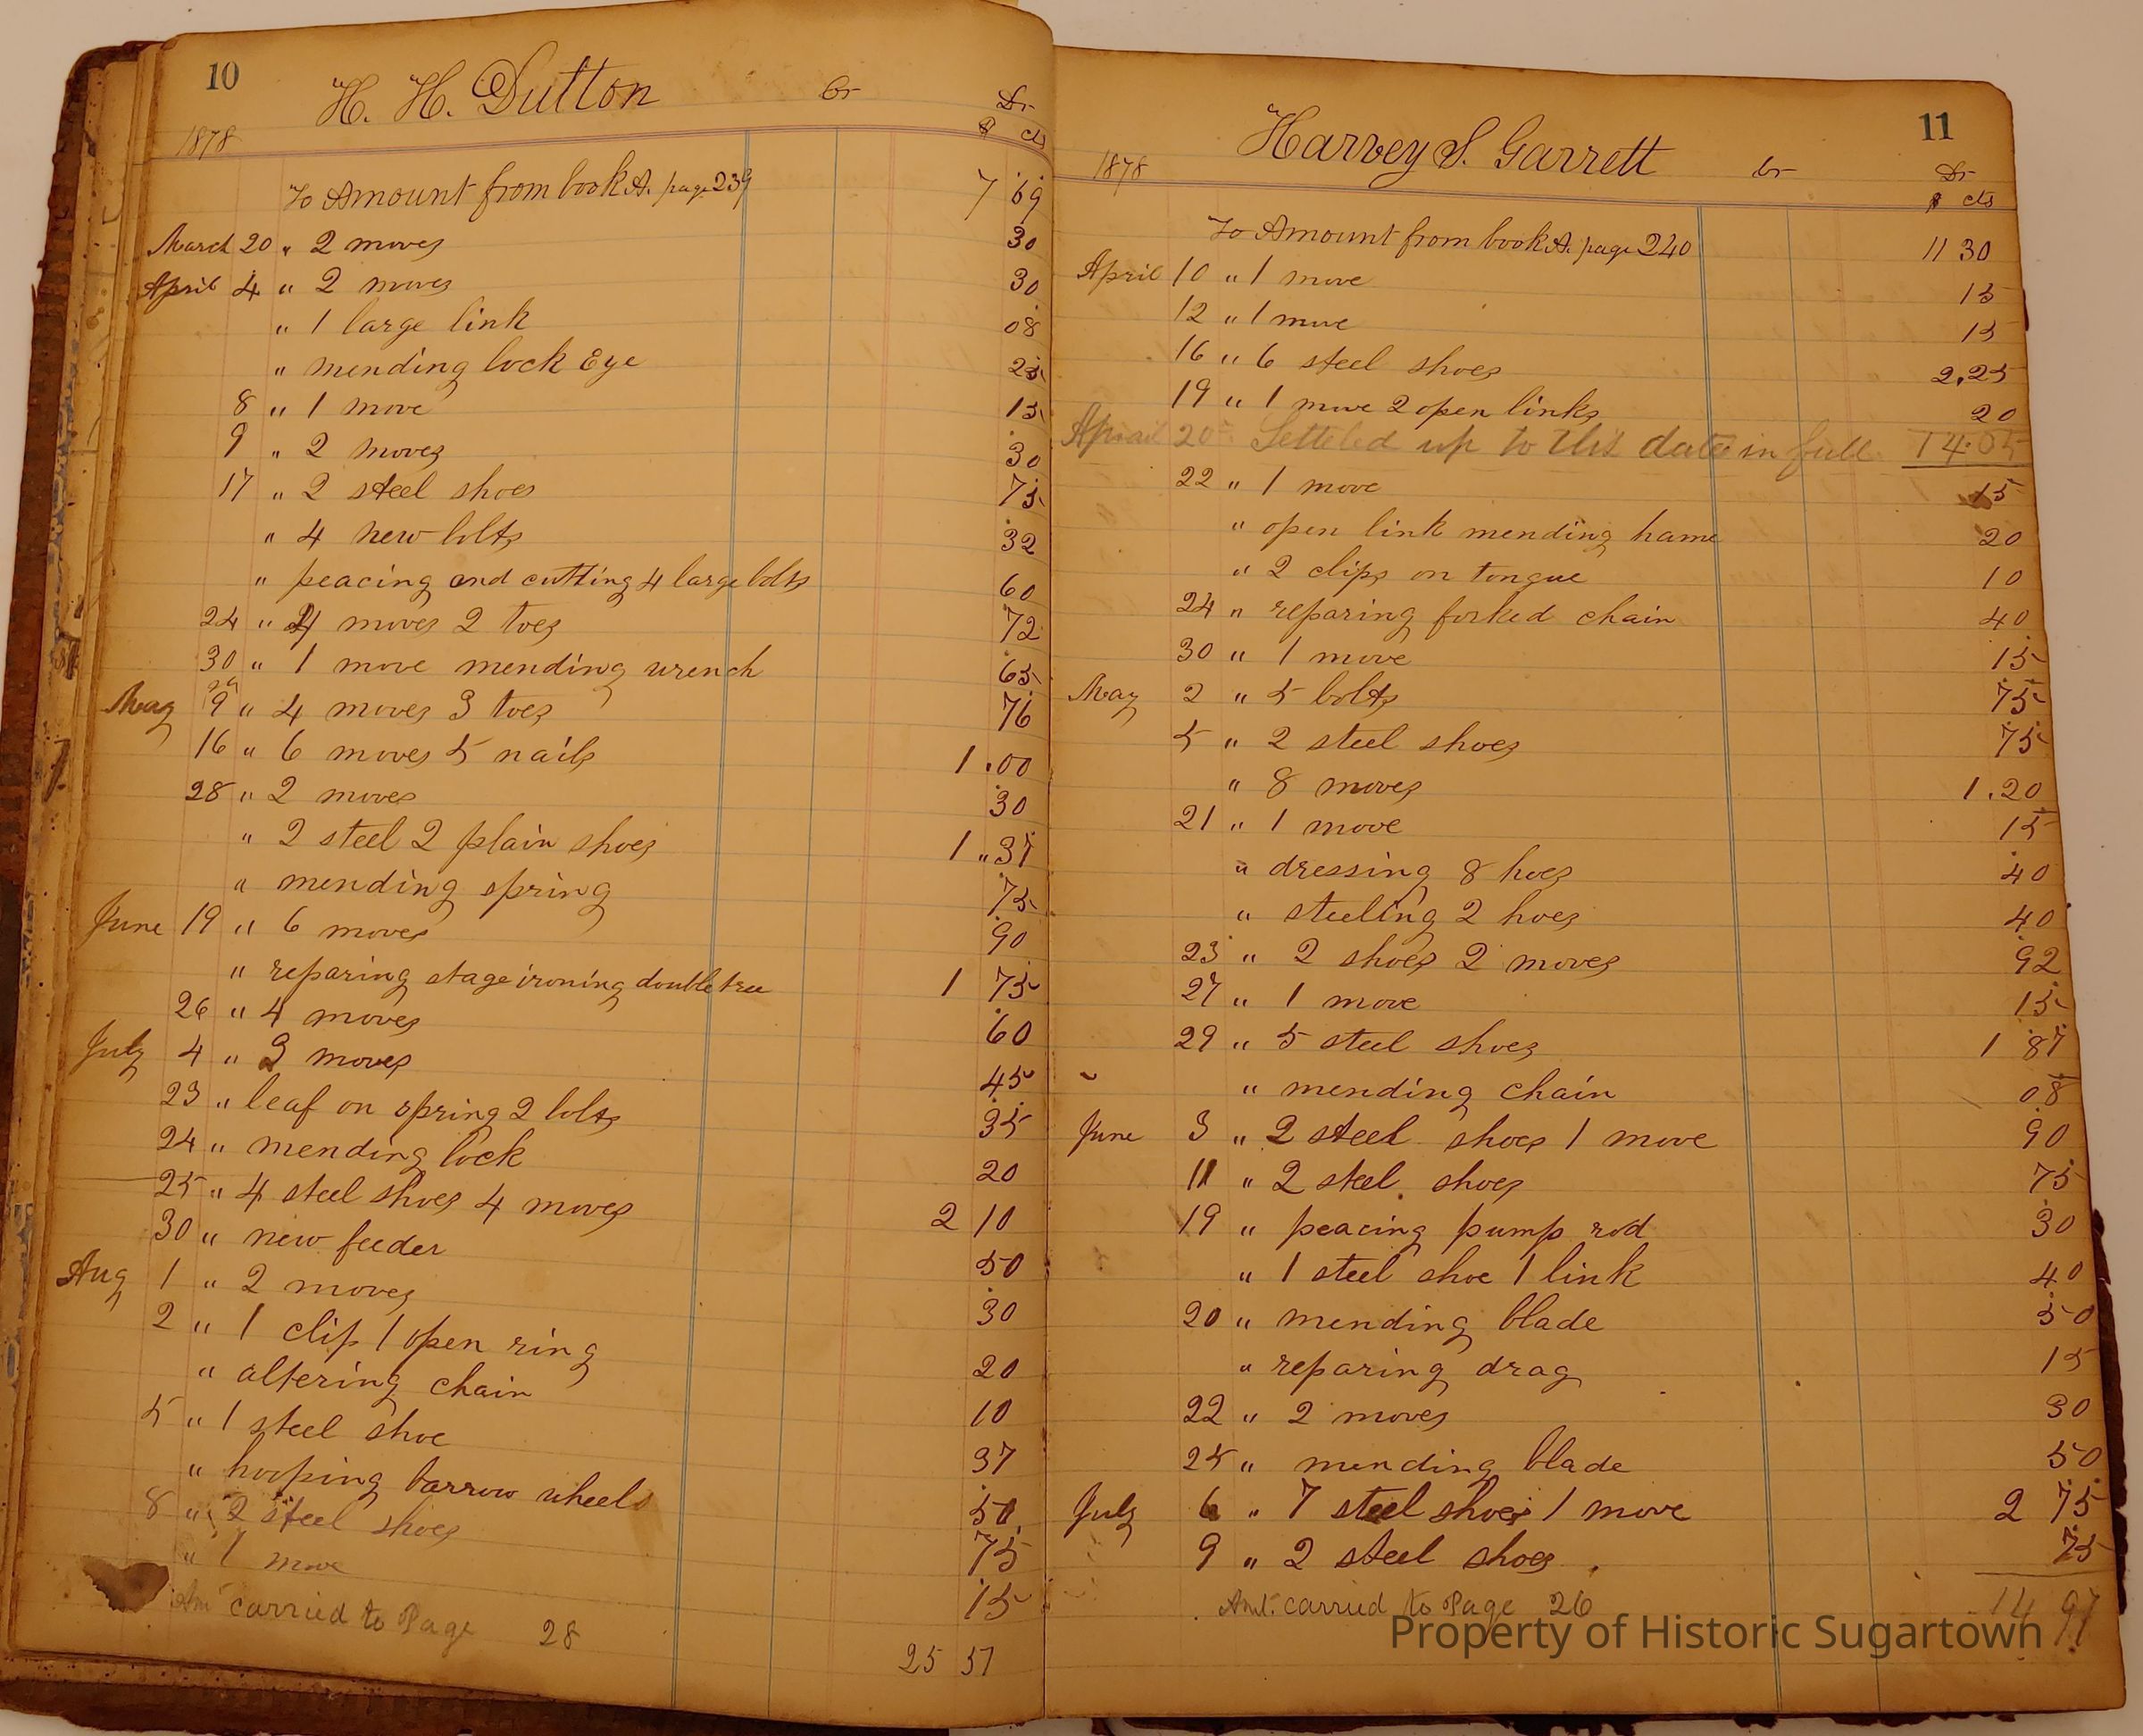 10
H. H. Dutton Cr Dr
1878 $ cts
To Amount from book A. page 239 7 69
March 20 " 2 moves 30
April 4 " 2 moves 30
" 1 large link 08
" mending lock Eye 25
8 " 1 move 15
9 " 2 moves 30
17 " 2 steel shoes 75
" 4 new bolts 32
" peacing and cutting 4 large bolts 60
24 " 4 moves 2 toes 72
30 " 1 move mending wrench 65
May 9 " 4 moves 3 toes 76
16 " 6 moves 5 nails 1.00
28 " 2 moves 30
" 2 steel 2 plain shoes 1 " 37
" mending spring 75
June 19 " 6 moves 90
" reparing stage ironing doubletree 1 75
26 " 4 moves 60
July 4 " 3 moves 45
23 " leaf on spring 2 bolts 35
24 " mending lock 20
25 " 4 steel shoes 4 moves 2 10
30 " new feeder 50
Aug 1 " 2 moves 30
2 " 1 clip 1 open ring 20
" altering chain 10
5 " 1 steel shoe 37
" hooping barrow wheels 50
8 " 2 steel shoes 75
" 1 move 15
Amt carried to Page 28 25 57
11
Harvey S. Garrett Cr Dr
1878 $ cts
To Amount from book A. page 240 11 30
April 10 " 1 move 15
12 " 1 move 15
16 " 6 steel shoes 2.25
19 " 1 move 2 open links 20
April 20th Setteled up to this date in full 14.05
22 " 1 move 15
" open link mending hame 20
" 2 clips on tongue 10
24 " reparing forked chain 40
30 " 1 move 15
May 2 " 5 bolts 75
5 " 2 steel shoes 75
" 8 moves 1.20
21 " 1 move 15
" dressing 8 hoes 40
" steeling 2 hoes 40
23 " 2 shoes 2 moves 92
27 " 1 move 15
29 " 5 steel shoes 1 87
" mending chain 08
June 3 " 2 steel shoes 1 move 90
11 " 2 steel shoes 75
19 " peacing pump rod 30
" 1 steel shoe 1 link 40
20 " mending blade 50
" reparing drag 15
22 " 2 moves 30
25 " mending blade 50
July 6 " 7 steel shoes 1 move 2 75
9 " 2 steel shoes 75
Amt. carried to Page 26 14 97
Property of Historic Sugartown